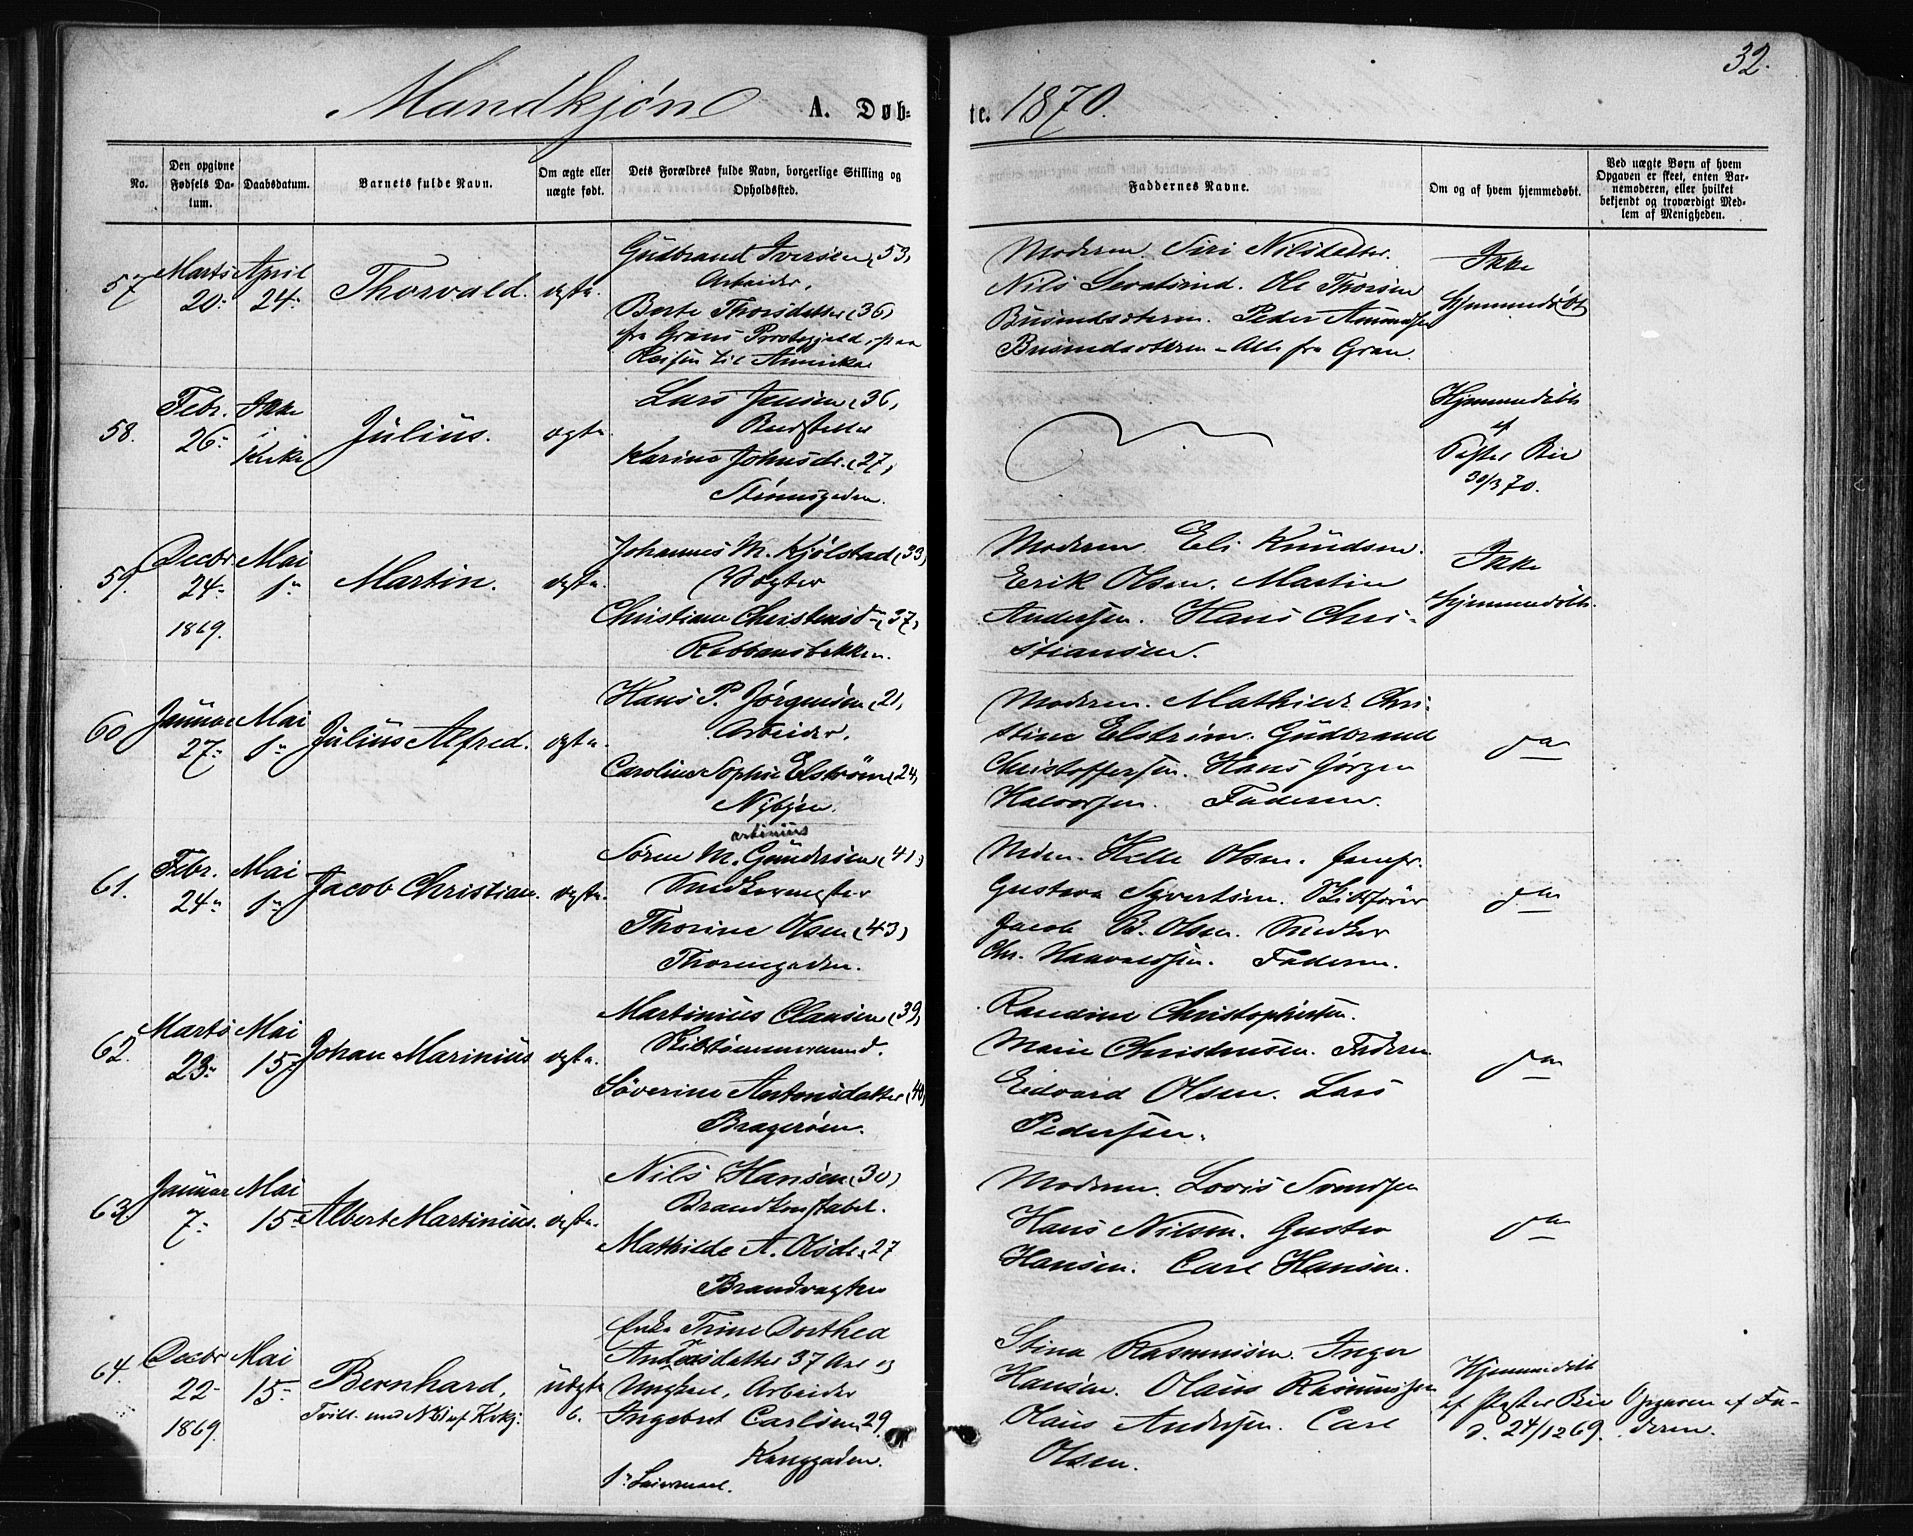 32.
Mandkjøn A. Døb-
te. 1870.
No.
Den opgivne Fødsels Da-
tum.
Daabsdatum.
Barnets fulde Navn.
Om ægte eller
uægte født.
Dets Forældres fulde Navn, borgerlige Stilling og
Opholdssted.
Faddernes Navne.
Om og af hvem hjemmedøbt.
Ved uægte Børn af hvem
Opgaven er skeet, enten Bar-
nemoderen, eller hvilket
bekjendt og troværdigt Med-
lem af Menigheden.
57
Marts
20.
April
24.
Thorvald.
ægte.
Gudbrand Iversen (53)
Arbeider,
Berte Thorsdatter (36)
fra Grans Prestegjeld, paa
Reisen til Amerika
Moderen. Siri Nilsdatter.
Nils Ole Thorsen
Peder Amundsen
Alle fra Gran.
Ikke
Hjemmedøbt
58.
Febr.
26.
Ikke
i
Kirke
Julius.
ægte.
Lars Jensen (36)
Karine Johnsdr. (27)
Strømsgaden.
Hjemmedøbt
af
Pastor Bie
30/3 70.
59.
Decbr
24.
1869.
Mai
1.
Martin.
ægte.
Johannes M. Kjølstad (33)
Vogter
Christiane Christensd. (37)
Kobbansbekken.
Moderen. Eli Knudsen.
Erik Olsen. Martin
Andersen. Hans Chri-
stiansen.
Ikke
Hjemmedøbt.
60
Januar
27.
Mai
1.
Julius Alfred.
ægte.
Hans P. Jørgensen (21)
Arbeider,
Caroline Sophie Elstrøm (24)
Nybyen.
Moderen. Mathilde Chri-
stine Elstrøm. Gudbrand
Christoffersen. Hans Jørgen
Halvorsen. Faderen.
do
61.
Febr.
24.
Mai
1.
Jacob Christian.
ægte.
artinius
Søren M. Gundersen (41)
Snedkermester
Thorine Olsen (43)
Thorengaden.
Mdrn. Helle Olsen. Jomfr.
Gustava Syvertsen. Skibsfører
Jacob B. Olsen. Snedker
Chr. Haavaldsen. Faderen.
do
62.
Marts
23.
Mai
15.
Johan Marinius
ægte.
Martinius Clausen (39)
Skibstømmermand.
Søverine Antonsdatter (40)
Bragerøen.
Randine Christophersen.
Marie Christensen. Faderen
Edvard Olsen. Lars
Pedersen.
do
63.
Januar
7.
Mai
15.
Albert Martinius.
ægte.
Nils Hansen (30)
Brandkonstabel.
Mathilde A. Olsdr. 27
Brandvagten
Moderen. Lovis Svendsen
Hans Nilsen. Gustav
Hansen. Carl Hansen.
do
64.
Decbr
22
1869.
Mai
15.
Bernhard,
Tvill. med No 61 af Kvkj.
uægte
6.
Enke Trine Dorthea
Andersdatter 37 Aar og
Ungkarl, Arbeider
Ingebret Carlsen 29.
Konggaden.
1. Leiermaal.
Stina Rasmussen. Inger
Hansen. Olaus Rasmussen
Olaus Andersen. Carl
Olsen.
Hjemmedøbt
af Pastor Bie
d. 24/12 69.
Opgaven af Fa-
deren.